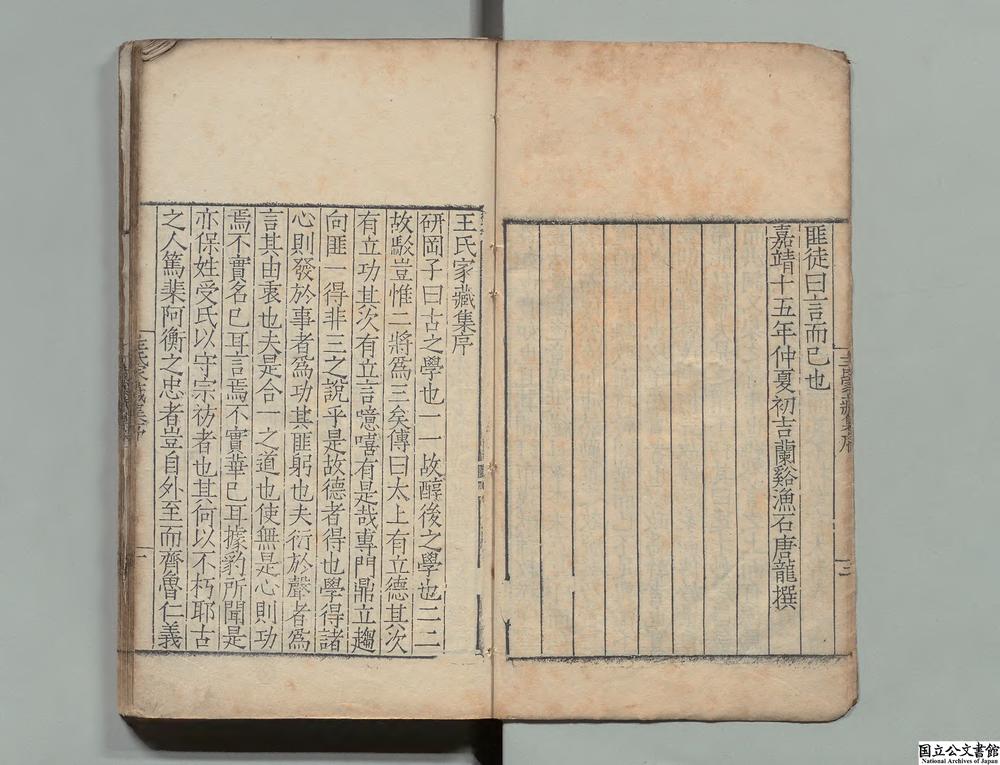 匪徒曰言而已也
嘉靖十五年仲夏初吉蘭谿漁石唐龍撰
三
王氏家藏集序
研岡子曰古之學也一一故醇後之學也二二
故駁豈惟二將爲三矣傳曰太上有立德其次
有立功其次有立言噫嘻有是哉專門鼎立趨
向匪一得非三之說乎是故德者得也學得諸
心則發於事者爲功其匪躬也夫衍於聲者爲
言其由衷也夫是合一之道也使無是心則功
焉不實名已耳言焉不實華已耳據豹所聞是
亦保姓受氏以守宗祊者也其何以不朽耶古
之人篤棐阿衡之忠者豈自外至而齊魯仁義
一
国立公文書館
National Archives of Japan